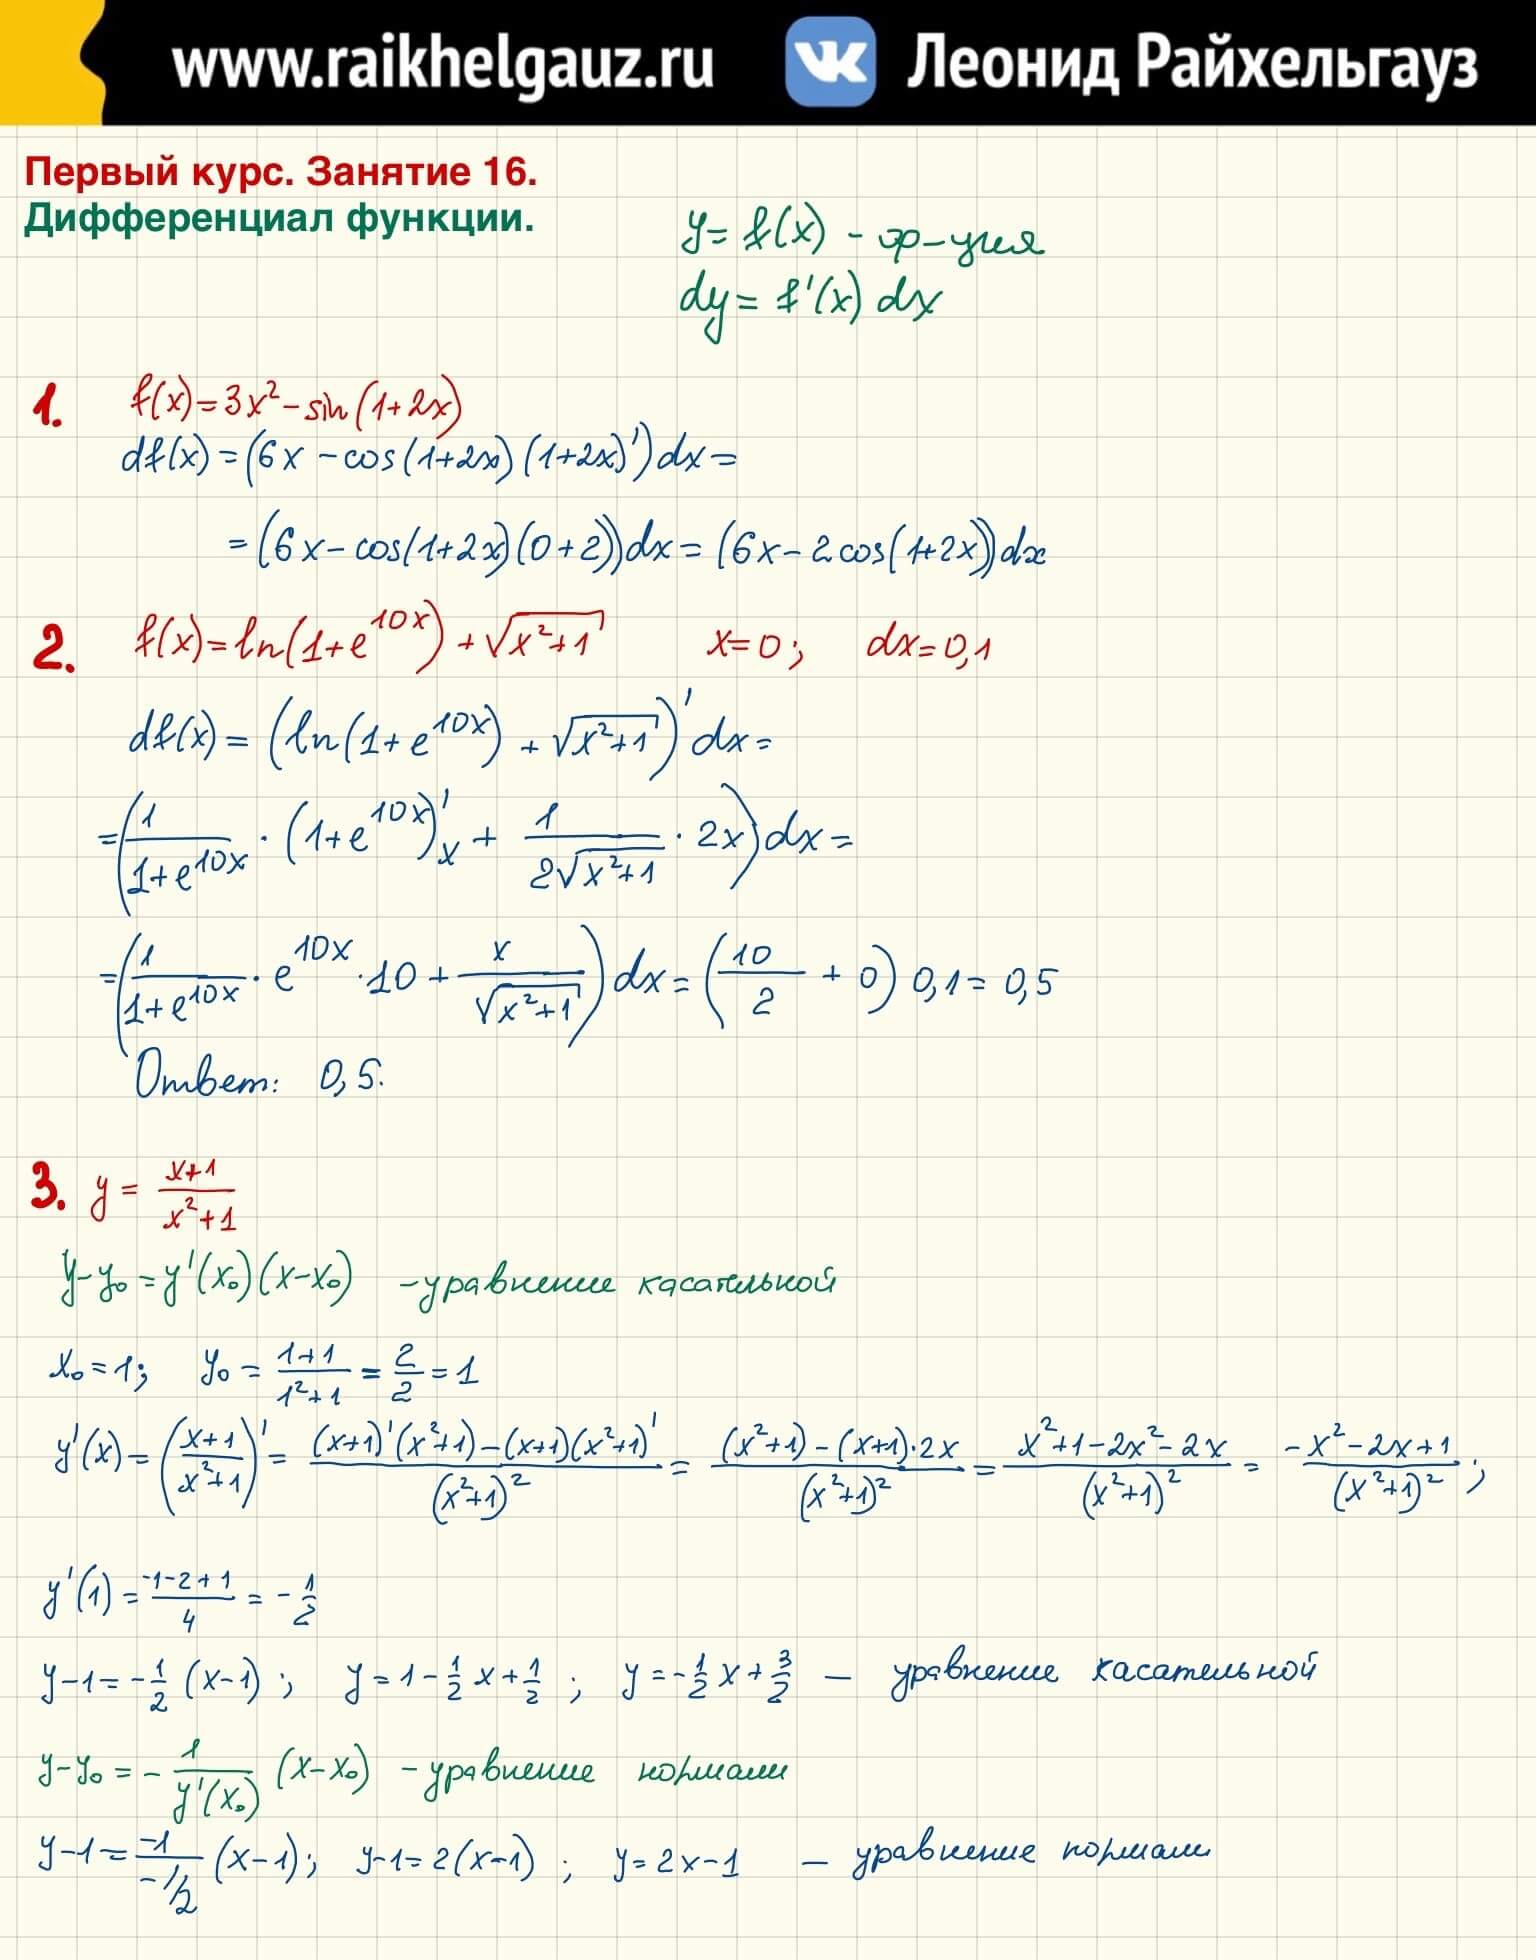 www.raikhelgauz.ru Леонид Райхельгауз
Первый курс. Занятие 16.
Дифференциал функции.
y = f(x) - ф-ция
dy = f'(x) dx
1. f(x) = 3x² - sin(1+2x)
df(x) = (6x - cos(1+2x)(1+2x)')dx =
= (6x - cos(1+2x)(0+2))dx = (6x - 2cos(1+2x))dx
2. f(x) = ln(1+e^{10x}) + √(x²+1) x=0; dx=0,1
df(x) = (ln(1+e^{10x}) + √(x²+1))' dx =
= (1/(1+e^{10x}) · (1+e^{10x})'ₓ + 1/(2√(x²+1)) · 2x)dx =
= (1/(1+e^{10x}) · e^{10x} · 10 + x/√(x²+1)) dx = (10/2 + 0) 0,1 = 0,5
Ответ: 0,5.
3. y = (x+1)/(x²+1)
y-y₀ = y'(x₀)(x-x₀) - уравнение касательной
x₀ = 1; y₀ = (1+1)/(1²+1) = 2/2 = 1
y'(x) = ((x+1)/(x²+1))' = ((x+1)'(x²+1) - (x+1)(x²+1)')/(x²+1)² = ((x²+1) - (x+1)·2x)/(x²+1)² = (x²+1-2x²-2x)/(x²+1)² = (-x²-2x+1)/(x²+1)² ;
y'(1) = (-1-2+1)/4 = -1/2
y-1 = -1/2 (x-1) ; y = 1 - 1/2 x + 1/2 ; y = -1/2 x + 3/2 — уравнение касательной
y-y₀ = - 1/y'(x₀) (x-x₀) - уравнение нормали
y-1 = -1/(-1/2) (x-1) ; y-1 = 2(x-1) ; y = 2x-1 — уравнение нормали